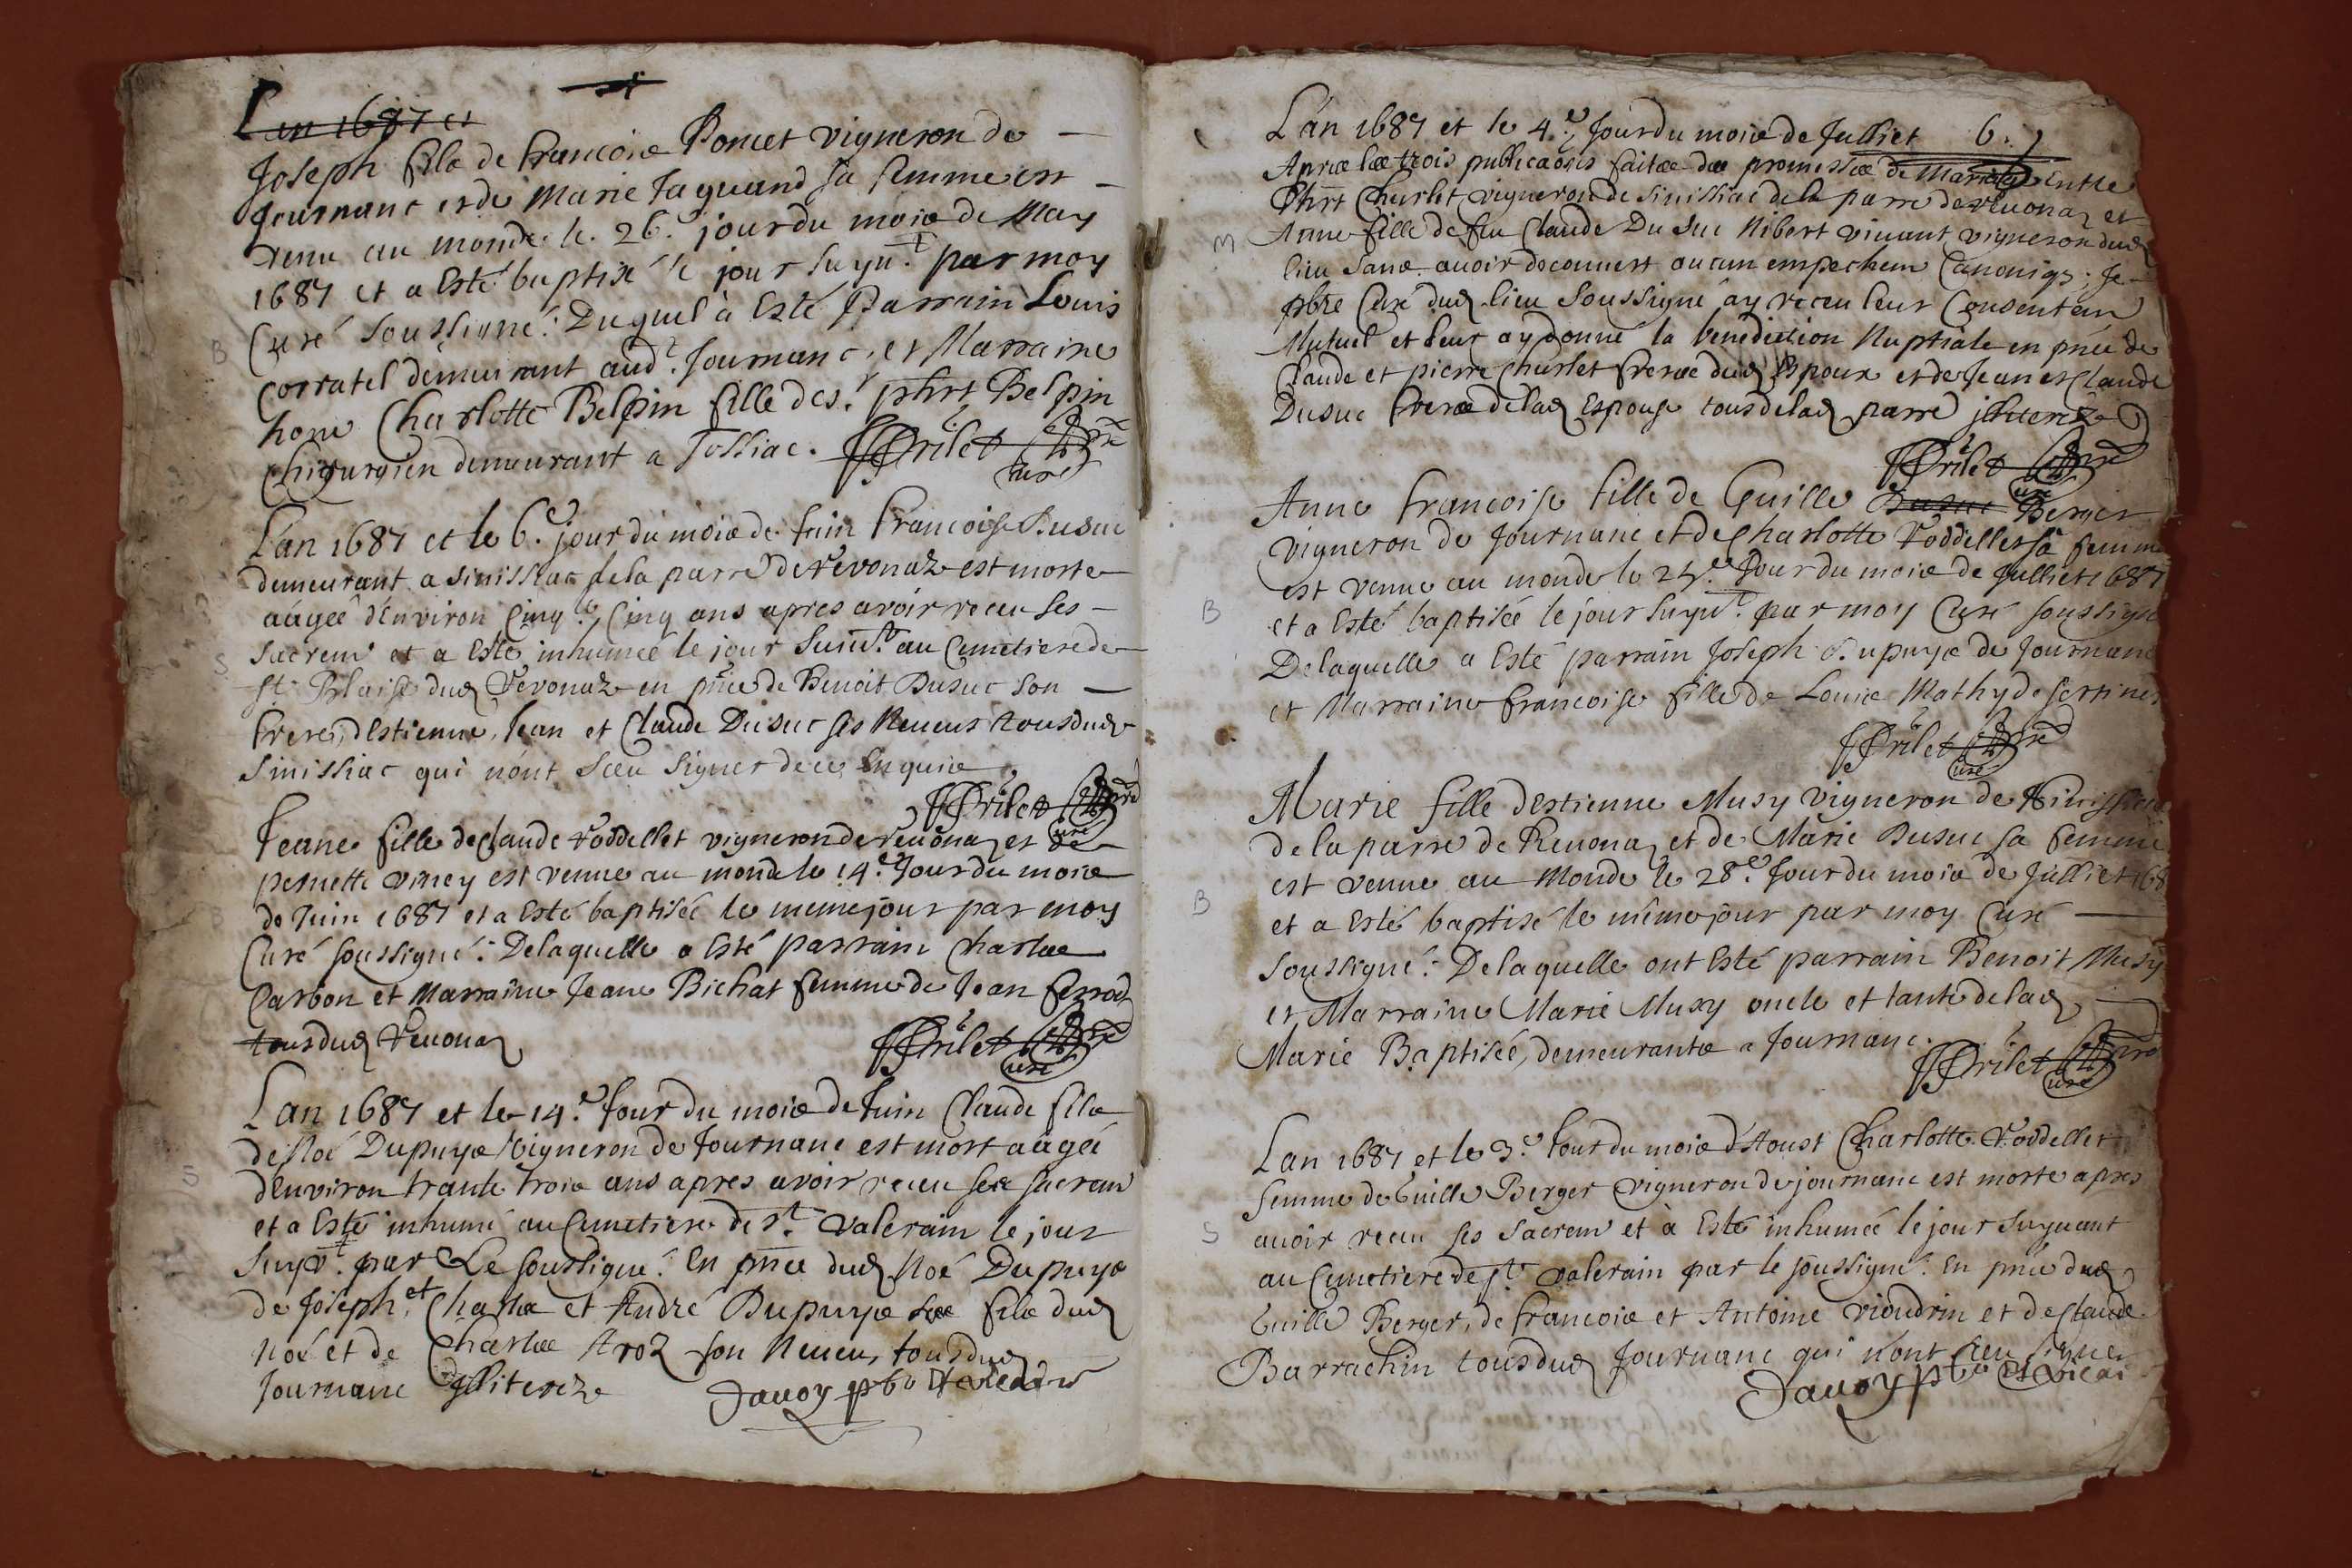 Lan 1687 et
Joseph fils de francois Poncet vigneron de
Journanc et de Marie Jaquand sa femme est
venu au monde le 26.e jour du mois de May
1687 et a Esté baptisé le jour suyu.t par moy
Curé soussigné : Duquel à Esté Parrain Louis
Corratel demeurant aud.t Journanc, et Marraine
hone Charlotte Belpin fille de s.r phrt Belpin
Chirurgien demeurant a Jossiac. Prilet pbre curé
Lan 1687 et le 6.e jour du mois de Juin francoise Dusuc
demeurant a sinissiac de la parre de Revonaz est morte
aâgeé d'Environ Cinq.te Cinq ans apres avoir receu ses
Sacrem et a Esté inhumeé le jour suiu.t au Cimetiere de
St. Blaise dud Revonaz en pnce de Benoit Dusuc son
frere, d'Estienne, Jean et Claude Dusuc ses Neveus tous dud
Sinissiac qui n'ont sceu signer de ce Enquis
Prilet pbre curé
Jeane fille de Claude Roddellet vigneron de Revonaz et de
pernette viney est venue au monde le 14.e Jour du mois
de Juin 1687 et a Esté baptiséé le meme jour par moy
Curé soussigné : De laquelle a Esté parrain Charles
Carbon et Marraine Jeane Bichat femme de Jean
tous dud Revonaz Prilet pbre curé
Lan 1687 et le 14.e Jour du mois de Juin Claude fils
de Noé Dupuys Vigneron de Journanc est mort aâgéé
d'Environ trante trois ans apres avoir receu ses sacrem
et a Esté inhumé au Cimetiere de St. Valerain le jour
Suyv.t par Le soussigné : En pnce dud Noé Dupuys
de Joseph, et Charles et André Dupuys ses fils dud
Noé et de Charles Aroz son Neveu, tous dud
Journanc Illiterez Dauoy pbr et vicaire
L'an 1687 et le 4.e Jour du mois de Julliet 6.
Apres les trois publicaons faites des promesses de Mariage entre
Phrt Charlet vigneron de sinissiac de la parre de Revonaz et
Anne fille de feu Claude Du Suc Nibert vivant vigneron dud
lieu sans avoir decouvert aucun empechem Canoniq; Je
pbre Curé dud lieu soussigné ay receu leur Consentem
Mutuel et leur ay donné la benediction Nuptiale en pnce de
Claude et pierre Charlet freres dud Espoux et de Jean et Claude
Dusuc freres de lad Espouse tous de lad parre illiterez
Prilet pbre curé
Anne francoise fille de Guille Dusuc Berger
vigneron de Journanc et de Charlotte Roddellet sa femme
est venue au monde le 25.e Jour du mois de Julliet 1687
et a Esté baptiséé le jour suyu.t par moy Curé soussigné
De laquelle a Esté parrain Joseph Dupuys de Journanc
et Marraine francoise fille de Louis Mathy de
Prilet pbre curé
Marie fille d'Estienne Musy vigneron de Sinissiac
de la parre de Revonaz et de Marie Dusuc sa femme
est venue au Monde le 28.e Jour du mois de Julliet 168
et a Esté baptisé le même jour par moy Curé
soussigné : De laquelle ont Esté parrain Benoit Musy
et Marraine Marie Musy oncle et tante de lad
Marie Baptiséé, demeurants a Journanc. Prilet pbre curé
Lan 1687 et le 3.e Jour du mois d'Aoust Charlotte Roddellet
femme de Guille Berger vigneron de journanc est morte apres
avoir receu ses Sacrem et à Esté inhuméé le jour suyuant
au Cimetiere de st Valerain par le soussigné : En pnce dud
Guille Berger, de francois et Antoine Vioudrin et de Claude
Barrachin tous dud Journanc qui n'ont sceu signer
Dauoy pbr et vicai